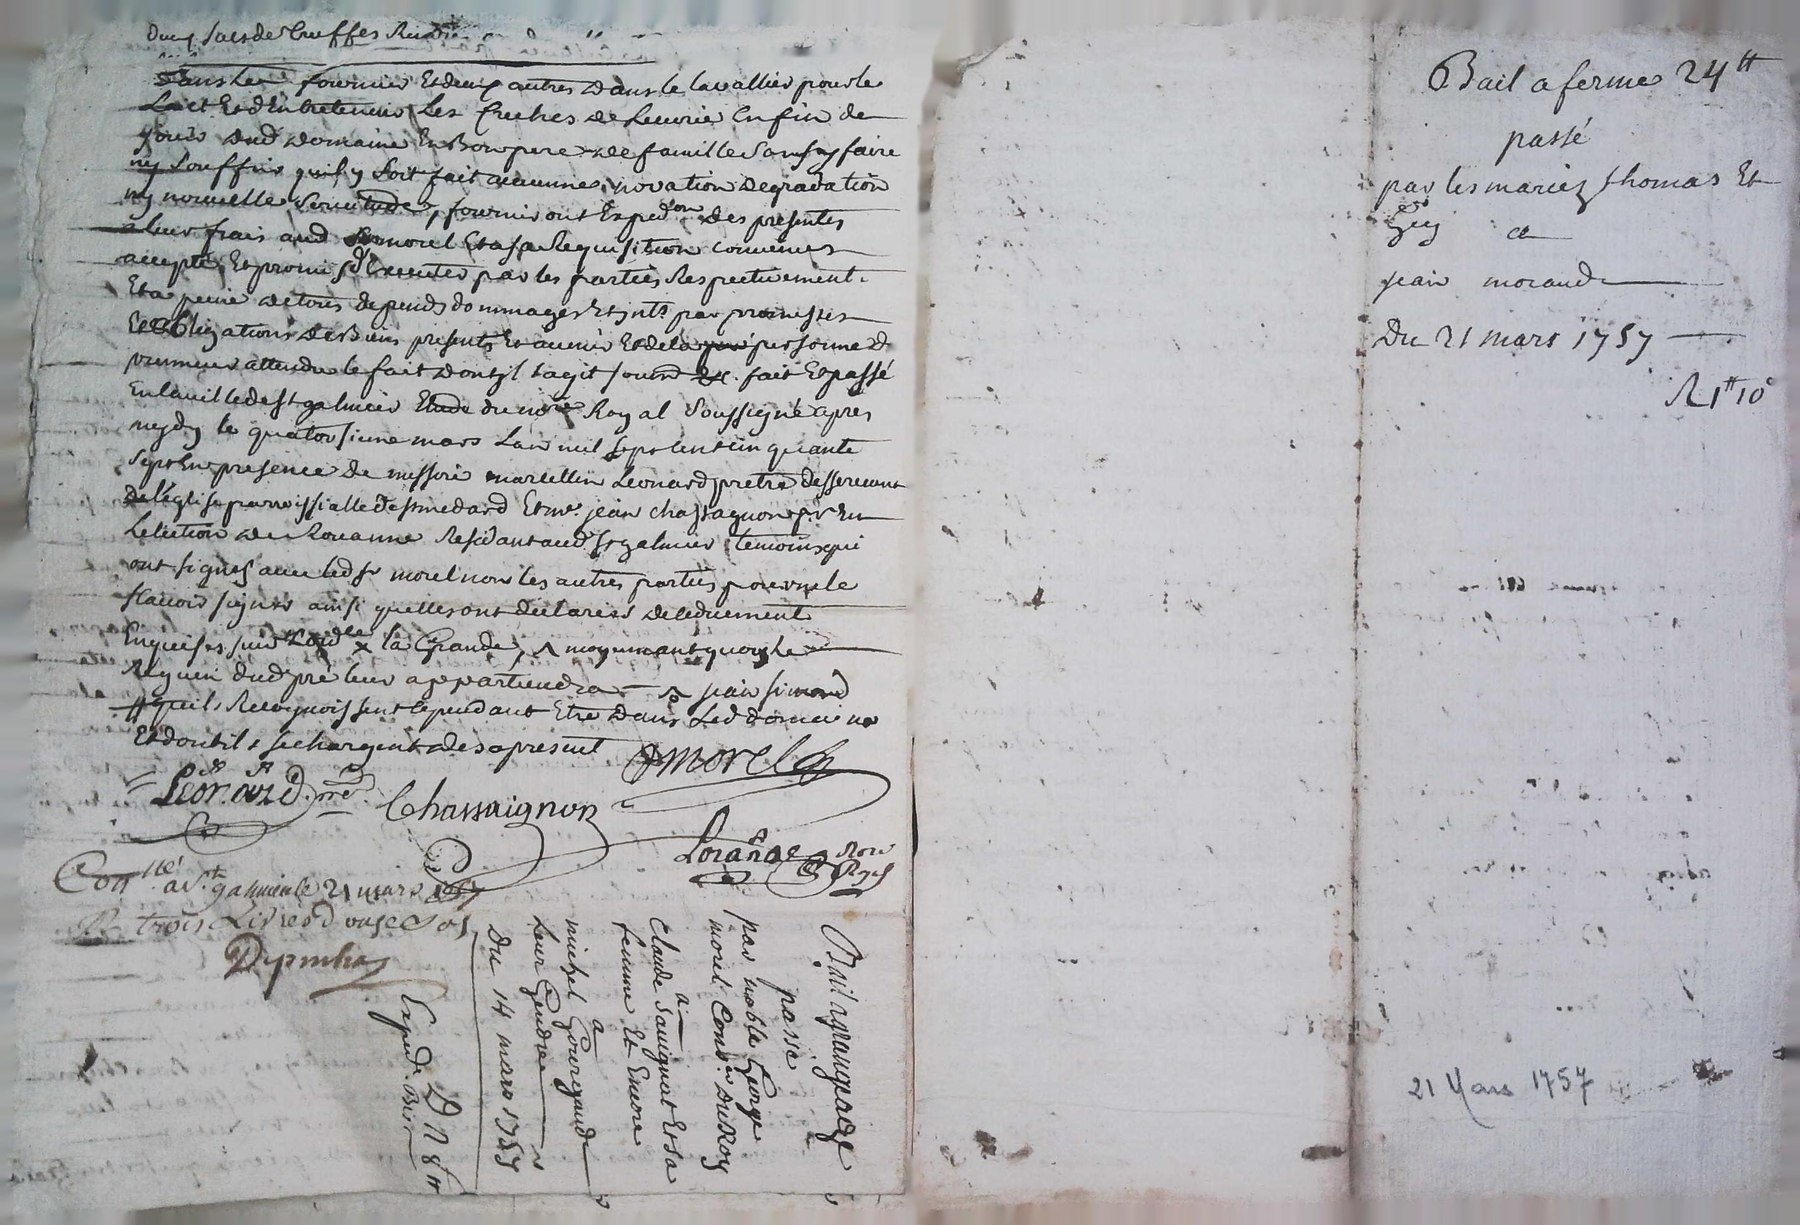 Deux sacs de truffes
fournier Et deux autres Dans le lavallier pour le
Lait Et d'Entretenir Les Creches de Lecurie Enfin de
jouir dud Domaine En Bon pere de famille Sans y faire
ny Souffrir quil y Soit fait aucunnes novation Degradation
ny nouvelle Servitude, fourniront Expedon Des presentes
a leur frais aud Sr morel Et a sa Requisition convenu
accepté Et promis d'Executer par les parties Respectivement
Et a peine de tous depends dommages Et jnts par promesses
Et Obligations De Biens presents Et avenir Et de la personne d
preneurs attendu le fait dont jl sagit soumd &c. fait Et passé
En la ville de st galmier Etude du nore Royal Soussigné apres
mydy le quatorsieme mars Lan mil sept Cent cinquante
Sept En presence de messire marcellin Leonard pretre desservant
de l'église parroissialle de st medard Et me jean chassagnon pr En
Lelection de Roanne Residant aud st galmier temoins qui
ont signés avec led sr morel non les autres parties pour ne le
scavoir signer ainsi quelles ont declarees de ce duement
Enquises sur la Grande, moyennant quoy le
Reguin dud pré leur appartiendra jean simond
quils Recognoissent cependant Etre Dans Led domaine
Et dont ils se chargent des apresent
morel
Léonard ptre
Chassaignon
Lorange Nore Royl
Conllé a St galmier le 21 mars 1757
R trois Livres d ouse sols
Bail a grangeage
passé
par noble George
morel Conser du Roy
a
Claude Sauignat Et sa
femme Et Encore
a
michel Gouregaud
Leur Gendre
Du 14 mars 1757
Bail a ferme 24tt
passé
par les mariez thomas Et
Guy a
jean morand
Du 21 mars 1757
R 1tt 10s
21 Mars 1757